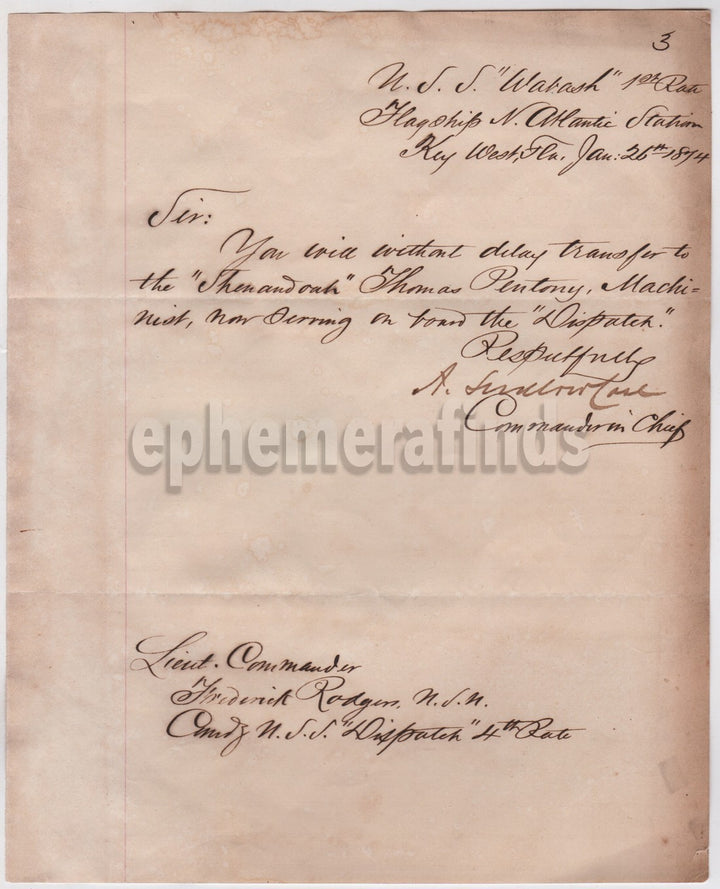 3
U.S.S. "Wabash" 1st Rate
Flagship N. Atlantic Station
Key West, Fla. Jan: 26th 1874
Sir:
You will without delay transfer to
the "Shenandoah" Thomas Pentony, Machi=
nist, now serving on board the "Dispatch".
Respectfully
A. Ludlow Case
Commander in Chief
ephemerafinds
Lieut. Commander
Frederick Rodgers, U.S.N.
Comdg U.S.S. "Dispatch" 4th Rate